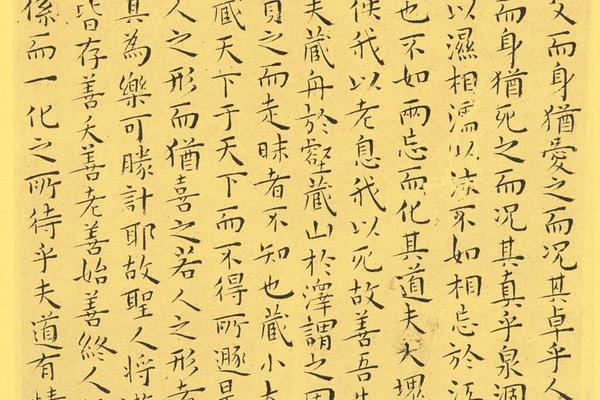 父而身猶愛之而况其卓乎人
而身猶死之而况其真乎泉涸
以濕相濡以沫不如相忘於江
也不如兩忘而化其道夫大塊
佚我以老息我以死故善吾生
夫藏舟於壑藏山於澤謂之固
負之而走昧者不知也藏小大
藏天下于天下而不得所遯是
人之形而猶喜之若人之形者
其為樂可勝計耶故聖人將遊
皆存善夭善老善始善終人
係而一化之所待乎夫道有情